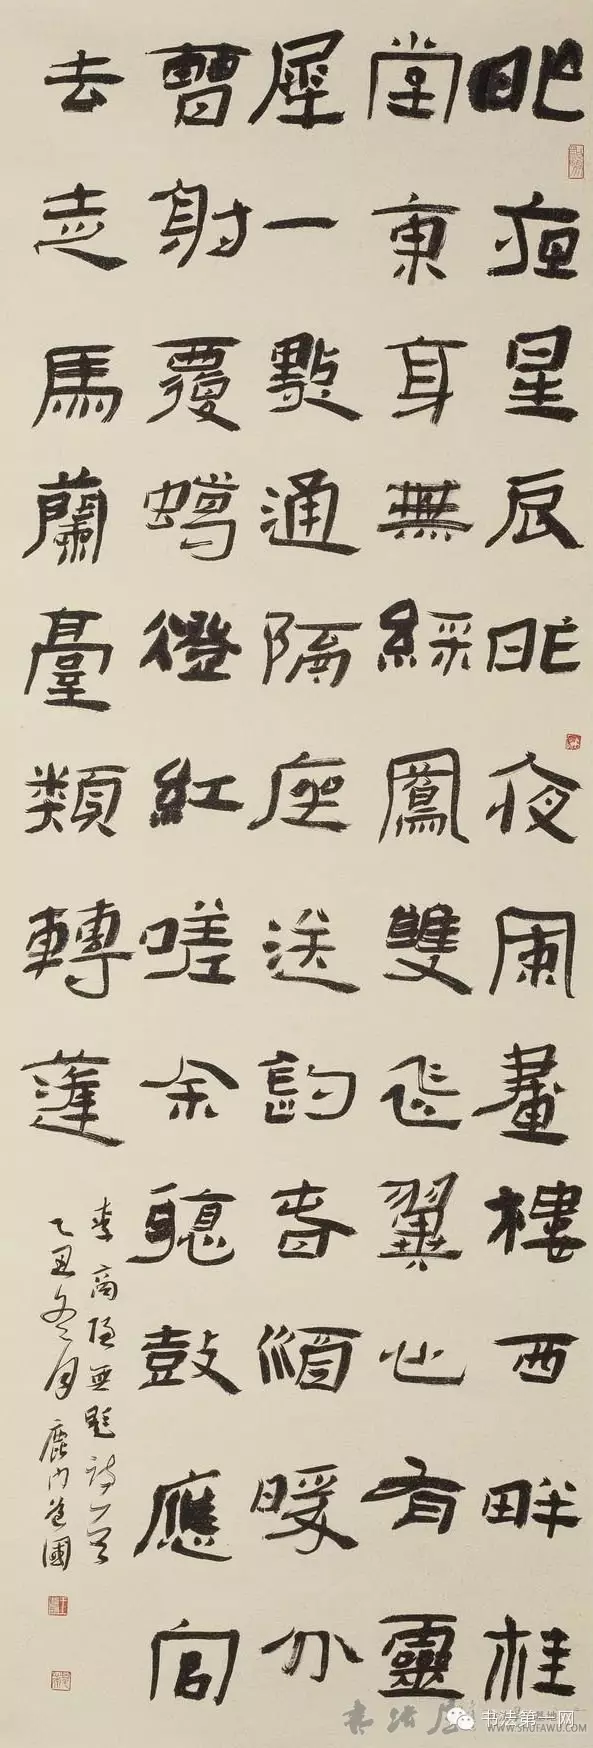 昨夜星辰昨夜風畫樓西畔桂
堂東身無綵鳳雙飛翼心有靈
犀一點通隔座送鉤春酒暖分
曹射覆蠟燈紅嗟余聽鼓應官
去走馬蘭臺類轉蓬
李商隱無題詩一首
乙丑冬月鹿門道國
书法屋
书法第一网
WWW.SHUFAWU.COM